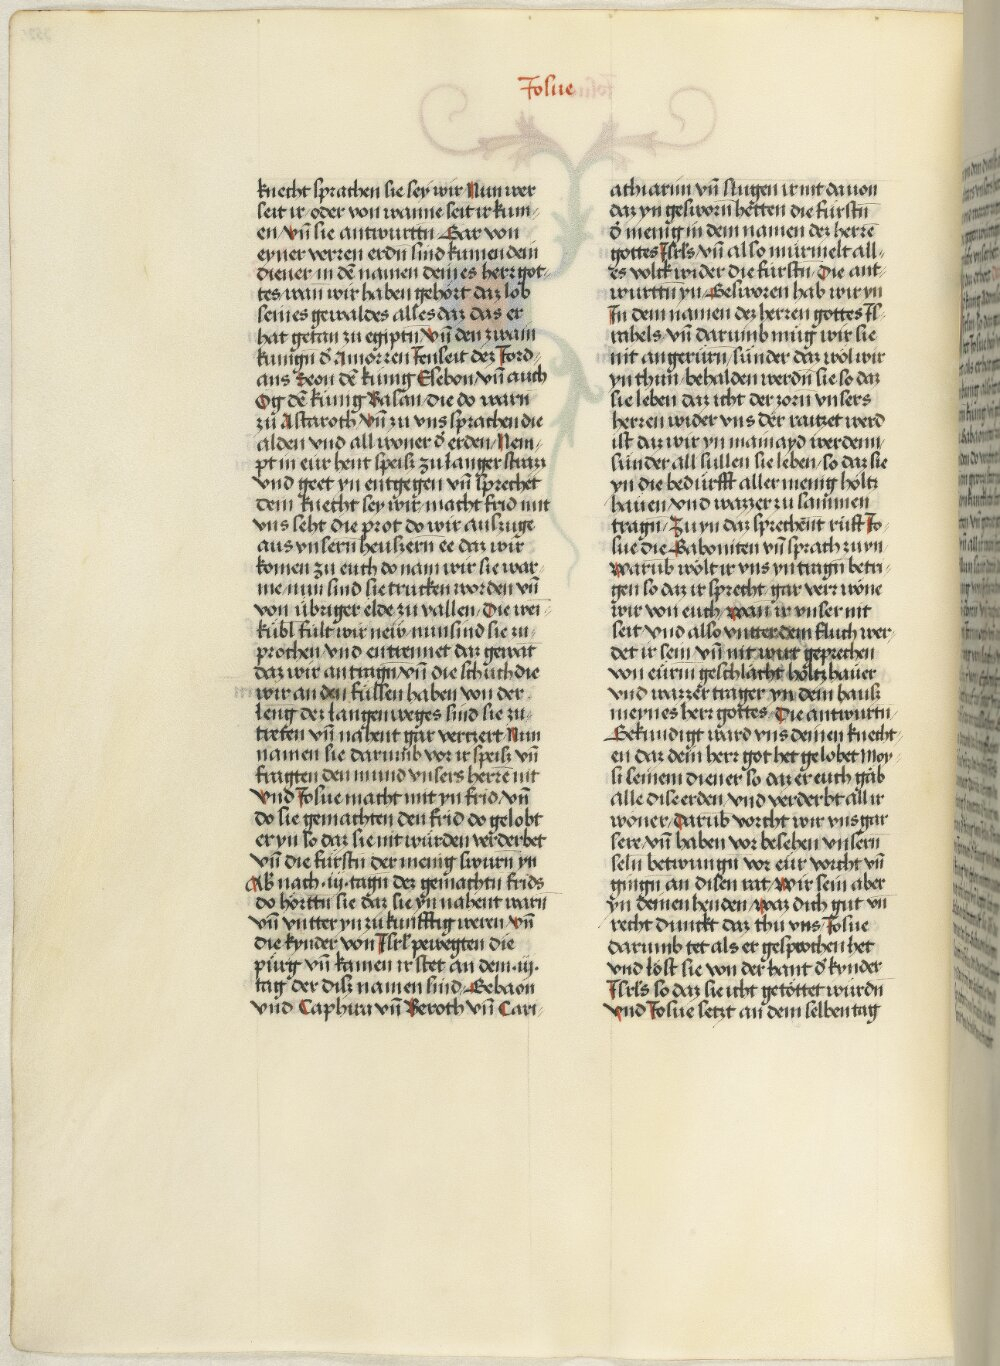 Josue
knecht sprachen sie sey wir Nun wer
seit ir oder von wanne seit ir kum⸗
en vn̄ sie antwurttn Gar von
eyner verren erdn sind kumen dein
diener in dē namen deines herr got⸗
tes wan wir haben gehört daz lob
seines gewaldes alles daz das er
hat getan zu egiptn Vn̄ den zwain
kunign d̄ Amorren Jenseit dez Jord⸗
ans Seon dē kunig Esebon vn̄ auch
Og dē kunig Basan die do warn
zu Astaroth Vn̄ zu vns sprachen die
alden vnd all woner d̄ erden Nem⸗
pt in eur hent speisz zu langer straz
vnd geet yn entgegen vn̄ sprechet
dem knecht sey wir macht frid mit
vns seht die prot do wir auszuge
aus vnsern heuszern ee daz wir
komen zu euch do nam wir sie war⸗
me nun sind sie trucken worden vn̄
von übriger elde zu vallen Die wei⸗
kübl fult wir new nun sind sie zu⸗
prochen vnd entrennet daz gewat
daz wir antragn vn̄ die schuch die
wir an den füssen haben von der
leng dez langen weges sind sie zu⸗
treten vn̄ nahent gar verczert Nun
namen sie darumb vor ir speisz vn̄
fragten den mund vnsers herrē nit
Vnd Josue macht mit yn frid vn̄
do sie gemachten den frid do gelobt
er yn so daz sie nit würden verderbet
vn̄ die fürstn der menig swurn yn
Ab nach .iij. tagn dez gemachtn frids
do hörttn sie daz sie yn nahent warn
vn̄ vntter yn zukunfftig weren Vn̄
die kynder von Jsrl pewegten die
pürg vn̄ kamen ir stet an dem .iij.
tag der disz namen sind Gebaon
vnd Caphira vn̄ Beroth vn̄ Cari⸗
athiarim vn̄ slugen ir nit dauon
daz yn gesworn hetten die fürstn
d̄ menig in dem namen dez herrē
gottes Jsrls vn̄ also murmelt all⸗
es volck wider die fürstn Die ant⸗
wurttn yn Gesworen hab wir yn
Jn dem namen dez herren gottes Js⸗
rahels vn̄ darumb mug wir sie
nit angerürn sünder daz wöl wir
yn thun behalden werdn sie so daz
sie leben daz icht der zorn vnsers
herren wider vns der raitzet werd
ist daz wir yn mainayd werdenn
sünder all sullen sie leben so daz sie
yn die bedürfft aller menig holtz
hauen vnd wazzer zu sammen
tragn Zu yn daz sprechent rüft Jo⸗
sue die Gaboniten vn̄ sprach zu yn
Warüb wölt ir vns yn trugn betri⸗
gen so daz ir sprecht gar verr wöne
wir von euch wan ir vnser mit
seit vnd also vntter dem fluch wer⸗
det ir sein vn̄ nit wirt geprechen
von eurm geschlächt höltzhauer
vnd wazzer trager yn dem hausz
meynes herr gottes Die antwurtn
Gekundigt ward vns deinen knecht⸗
en daz dein herr got het gelobet Moy⸗
si seinem diener so daz er euch gäb
alle dise erden vnd verderbt all ir
woner Darüb vorcht wir vns gar
sere vn̄ haben vor besehen vnsern
seln betwungn vor eur vorcht vn̄
gingn an disen rat Wir sein aber
yn deinen henden Waz dich gut vn̄
recht dunckt daz thu vns Josue
darumb tet als er gesprochen het
vnd löst sie von der hant d̄ kynder
Jsrls so daz sie icht getöttet würdn
Vnd Josue setzt an dem selben tag